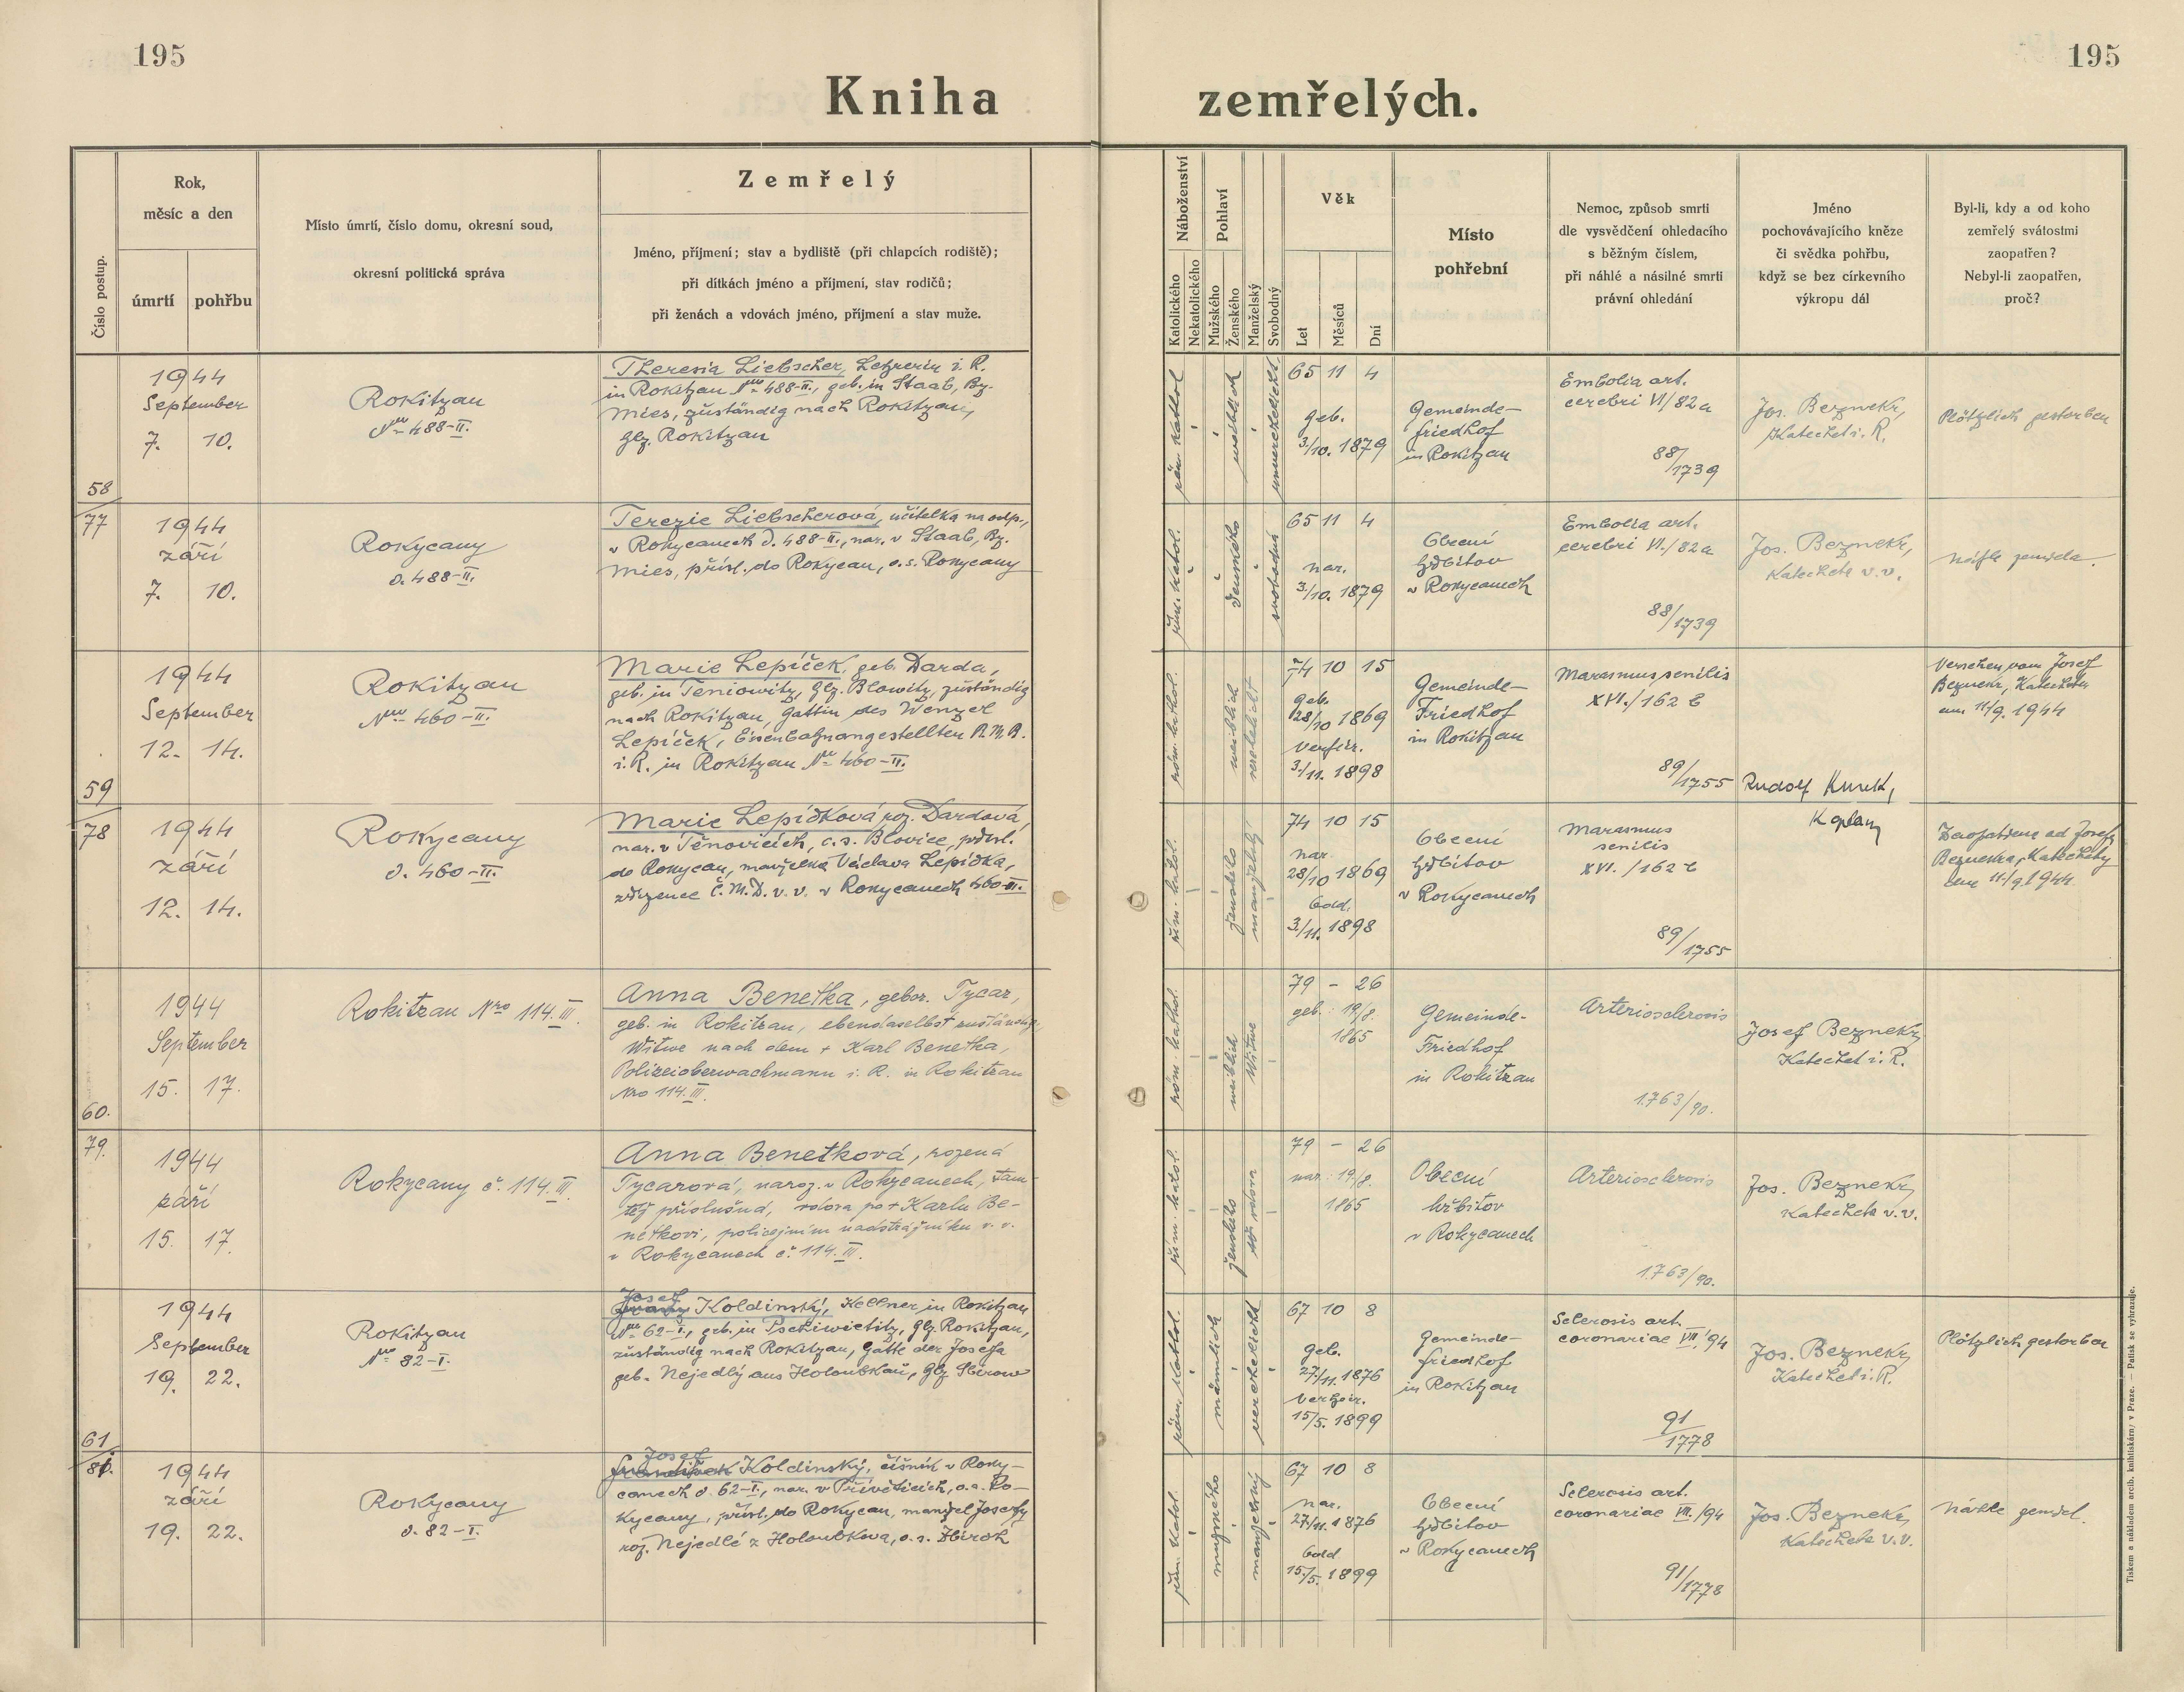 195
195
Kniha zemřelých.
Číslo postup.
Rok,
měsíc a den
úmrtí
pohřbu
Místo úmrtí, číslo domu, okresní soud,
okresní politická správa
Zemřelý
Jméno, příjmení; stav a bydliště (při chlapcích rodiště);
při dítkách jméno a příjmení, stav rodičů;
při ženách a vdovách jméno, příjmení a stav muže.
Náboženství
Katolického
Nekatolického
Pohlaví
Mužského
Ženského
Manželský
Svobodný
Věk
Let
Měsíců
Dní
Místo
pohřební
Nemoc, způsob smrti
dle vysvědčení ohledacího
s běžným číslem,
při náhlé a násilné smrti
právní ohledání
Jméno
pochovávajícího kněze
či svědka pohřbu,
když se bez církevního
výkropu dál
Byl-li, kdy a od koho
zemřelý svátostmi
zaopatřen?
Nebyl-li zaopatřen,
proč?
58
1944
September
7. 10.
Rokitzan
Nro 488-II.
Theresia Liebscher, Lehrerin i. R.
in Rokitzan Nro 488-II., geb. in Staab, Bz.
Mies, zuständig nach Rokitzan,
Glz. Rokitzan
röm. kathol.
weiblich
unverehelicht
65 11 4
geb.
3/10. 1879
Gemeinde-
friedhof
in Rokitzan
Embolia art.
cerebri VI/82a
88/1739
Jos. Beznekr,
Katechet i. R.
Plötzlich gestorben
77
1944
září
7. 10.
Rokycany
č. 488-II.
Terezie Liebscherová, učitelka na odp.,
v Rokycanech č. 488-II., nar. v Staab, Bz.
Mies, přísl. do Rokycan, o. s. Rokycany
řím. katol.
ženského
svobodná
65 11 4
nar.
3/10. 1879
Obecní
hřbitov
v Rokycanech
Embolia art.
cerebri VI./82a
88/1739
Jos. Beznekr,
Katecheta v. v.
Náhle zemřela.
59
1944
September
12. 14.
Rokitzan
Nro 460-II.
Marie Lepíček, geb. Darda,
geb. in Teniowitz, Glz. Blowitz, zuständig
nach Rokitzan, Gattin des Wenzel
Lepíček, Eisenbahnangestellten B. M. B.
i. R. in Rokitzan Nro 460-II.
röm. kathol.
weiblich
verehelicht
74 10 15
geb.
28/10 1869
verheir.
3./11. 1898
Gemeinde-
Friedhof
in Rokitzan
Marasmus senilis
XVI./162 b
89/1755
Rudolf Kurek,
Kaplan
Versehen vom Josef
Beznekr, Katecheten
am 11/9. 1944
78
1944
září
12. 14.
Rokycany
č. 460-II.
Marie Lepíčková roz. Dardová,
nar. v Těnovicích, o. s. Blovice, přísl.
do Rokycan, manželka Václava Lepíčka,
zřízence Č. M. D. v. v. v Rokycanech 460-II.
řím. katol.
ženského
manželský
74 10 15
nar.
28/10 1869
Odd.
3./11. 1898
Obecní
hřbitov
v Rokycanech
Marasmus
senilis
XVI./162 b
89/1755
Zaopatřena od Josefa
Beznekra, Katechety
dne 11/9. 1944.
60.
1944
September
15. 17.
Rokitzan Nro 114. III.
Anna Benetka, gebor. Tycar,
geb. in Rokitzan, ebendaselbst zuständig,
Witwe nach dem + Karl Benetka,
Polizeioberwachmann i. R. in Rokitzan
Nro 114. III.
röm. kathol.
weiblich
Witwe
79 - 26
geb.: 19/8.
1865
Gemeinde-
Friedhof
in Rokitzan
Arteriosclerosis
1.763/90.
Josef Beznekr,
Katechet i. R.
79.
1944
září
15. 17.
Rokycany č. 114. III.
Anna Benetková, rozená
Tycarová, naroz. v Rokycanech, tam-
též příslušná, vdova po + Karlu Be-
netkovi, policejním nadstrážníku v. v.
v Rokycanech č. 114. III.
řím. katol.
ženského
vdova
79 - 26
nar.: 19/8.
1865
Obecní
hřbitov
v Rokycanech
Arteriosclerosis
1.763/90.
Jos. Beznekr,
Katecheta v. v.
61.
1944
September
19. 22.
Rokitzan
Nro 82-I.
Josef
Franz Koldinský, Kellner in Rokitzan
Nro 62-I., geb. in Pschiwietitz, Glz. Rokitzan,
zuständig nach Rokitzan, Gatte der Josefa
geb. Nejedlý aus Holoubkau, Glz. Sbirow
röm. kathol.
männlich
verehelicht
67 10 8
geb.
27/11. 1876
verheir.
15/5. 1899
Gemeinde-
friedhof
in Rokitzan
Sclerosis art.
coronariae VII./94
91/1778
Jos. Beznekr,
Katechet i. R.
Plötzlich gestorben
80.
1944
září
19. 22.
Rokycany
č. 82-I.
Josef
František Koldinský, číšník v Roky-
canech č. 62-I., nar. v Přívěticích, o. s. Ro-
kycany, přísl. do Rokycan, manžel Josefy
roz. Nejedlé z Holoubkova, o. s. Zbiroh
řím. katol.
mužského
manželský
67 10 8
nar.
27/11. 1876
Odd
15./5. 1899
Obecní
hřbitov
v Rokycanech
Sclerosis art.
coronariae VII./94
91/1778
Jos. Beznekr,
Katecheta v. v.
Náhle zemřel.
Tiskem a nákladem arcib. knihtiskárny v Praze. — Patisk se vyhrazuje.